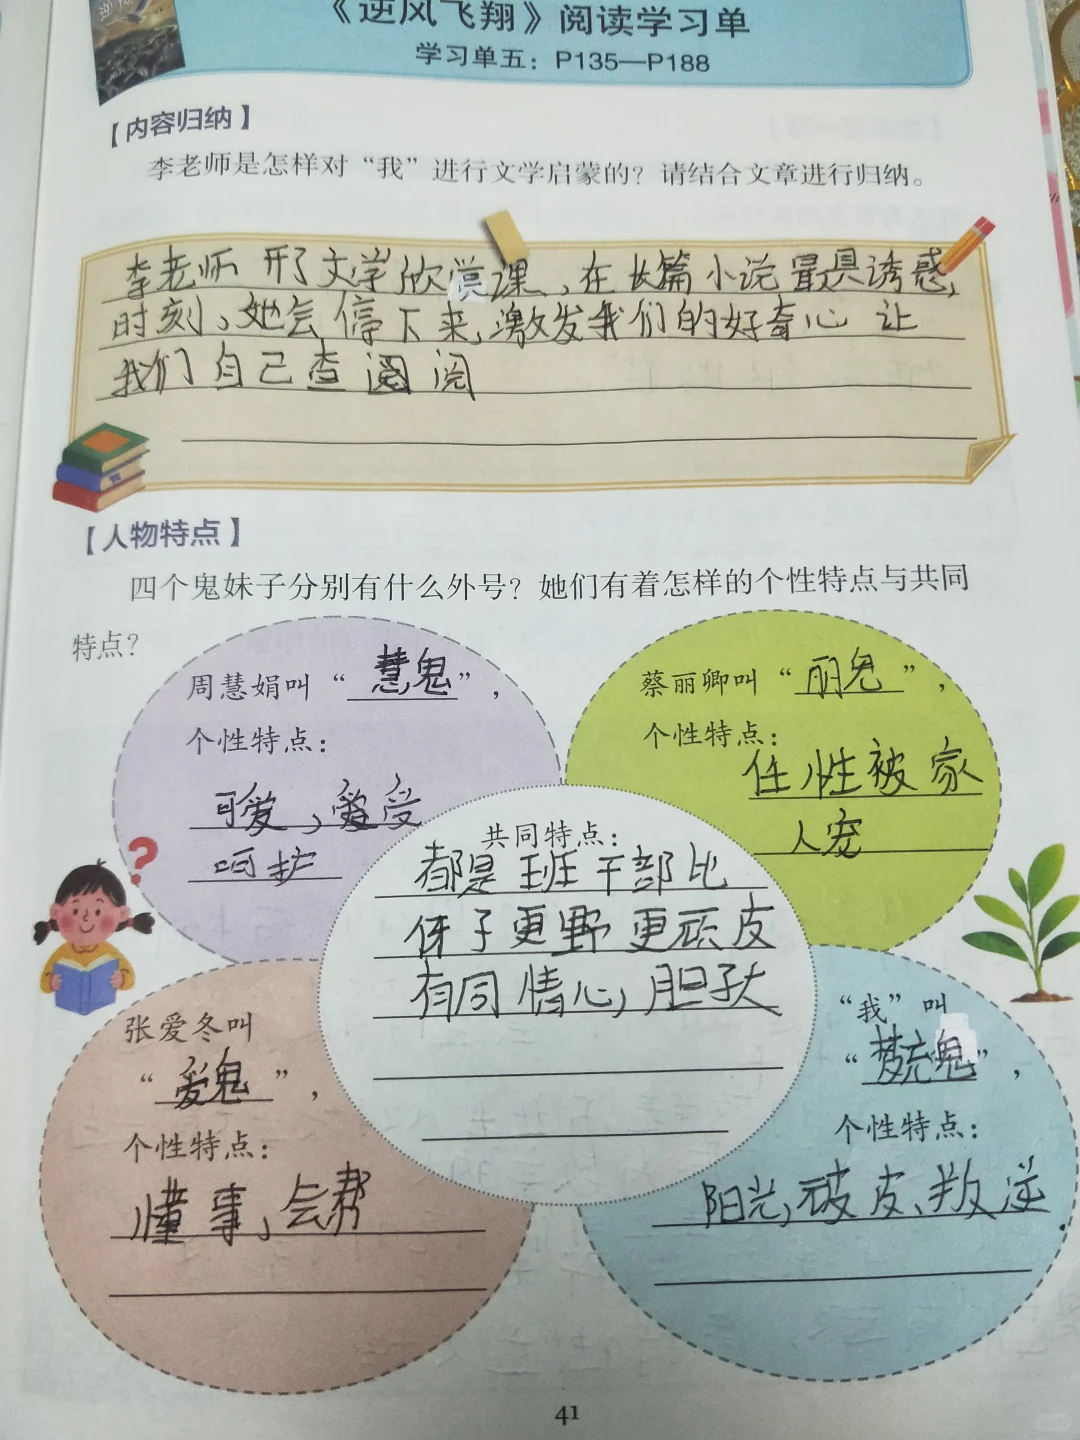 《逆风飞翔》阅读学习单
学习单五：P135—P188
【内容归纳】
李老师是怎样对“我”进行文学启蒙的？请结合文章进行归纳。
李老师开了文学欣赏课，在长篇小说最具诱惑，
时刻，她会停下来，激发我们的好奇心 让
我们自己查阅
【人物特点】
四个鬼妹子分别有什么外号？她们有着怎样的个性特点与共同
特点？
周慧娟叫“慧鬼”，
个性特点：
可爱，受
呵护
蔡丽卿叫“丽鬼”，
个性特点：
任性被家
人宠
共同特点：
都是班干部比
伢子更野更顽皮
有同情心，胆子大
张爱冬叫
“爱鬼”，
个性特点：
懂事，会帮
“我”叫
“鬼”，
个性特点：
阳光，皮、叛逆
41